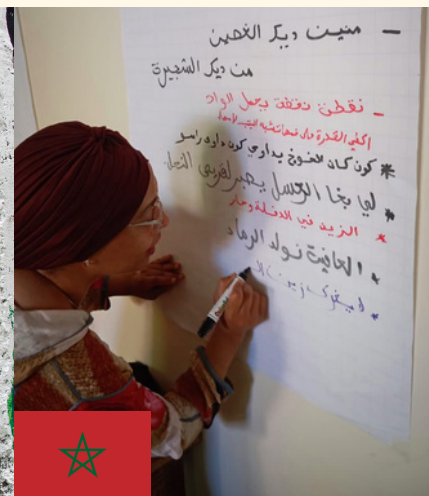 - منين ديك الغصين
من ديك الشجيرة
- نقطة نقطة يحمل الواد
اكفي القدرة على فمها
* كون كان الخوخ يداوي كون داوى راسو
* لي بغا العسل يصبر لقريص النحل
* الزيد في الدفلة وحار
* العافية تولد الرماد
* لا يغرك زين